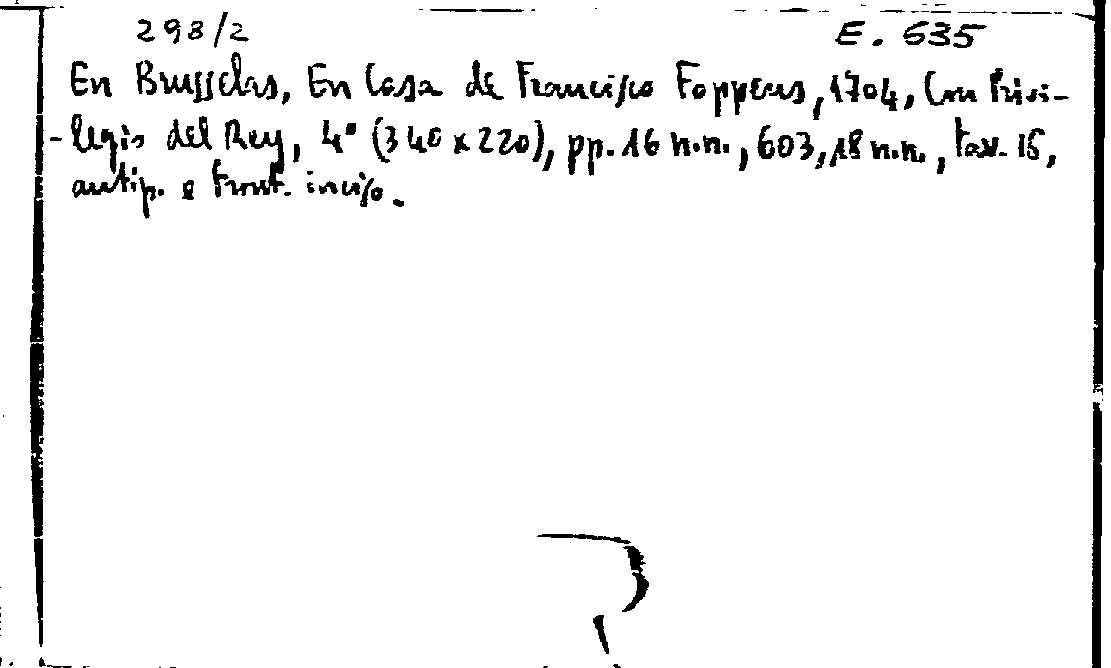 298/2 E. 635
En Brusselas, En Casa de Francisco Foppens, 1704, Con Privi-
-legio del Rey, 4° (340 x 220), pp. 16 n.n., 603, 18 n.n., tav. 15,
antip. e front. inciso.